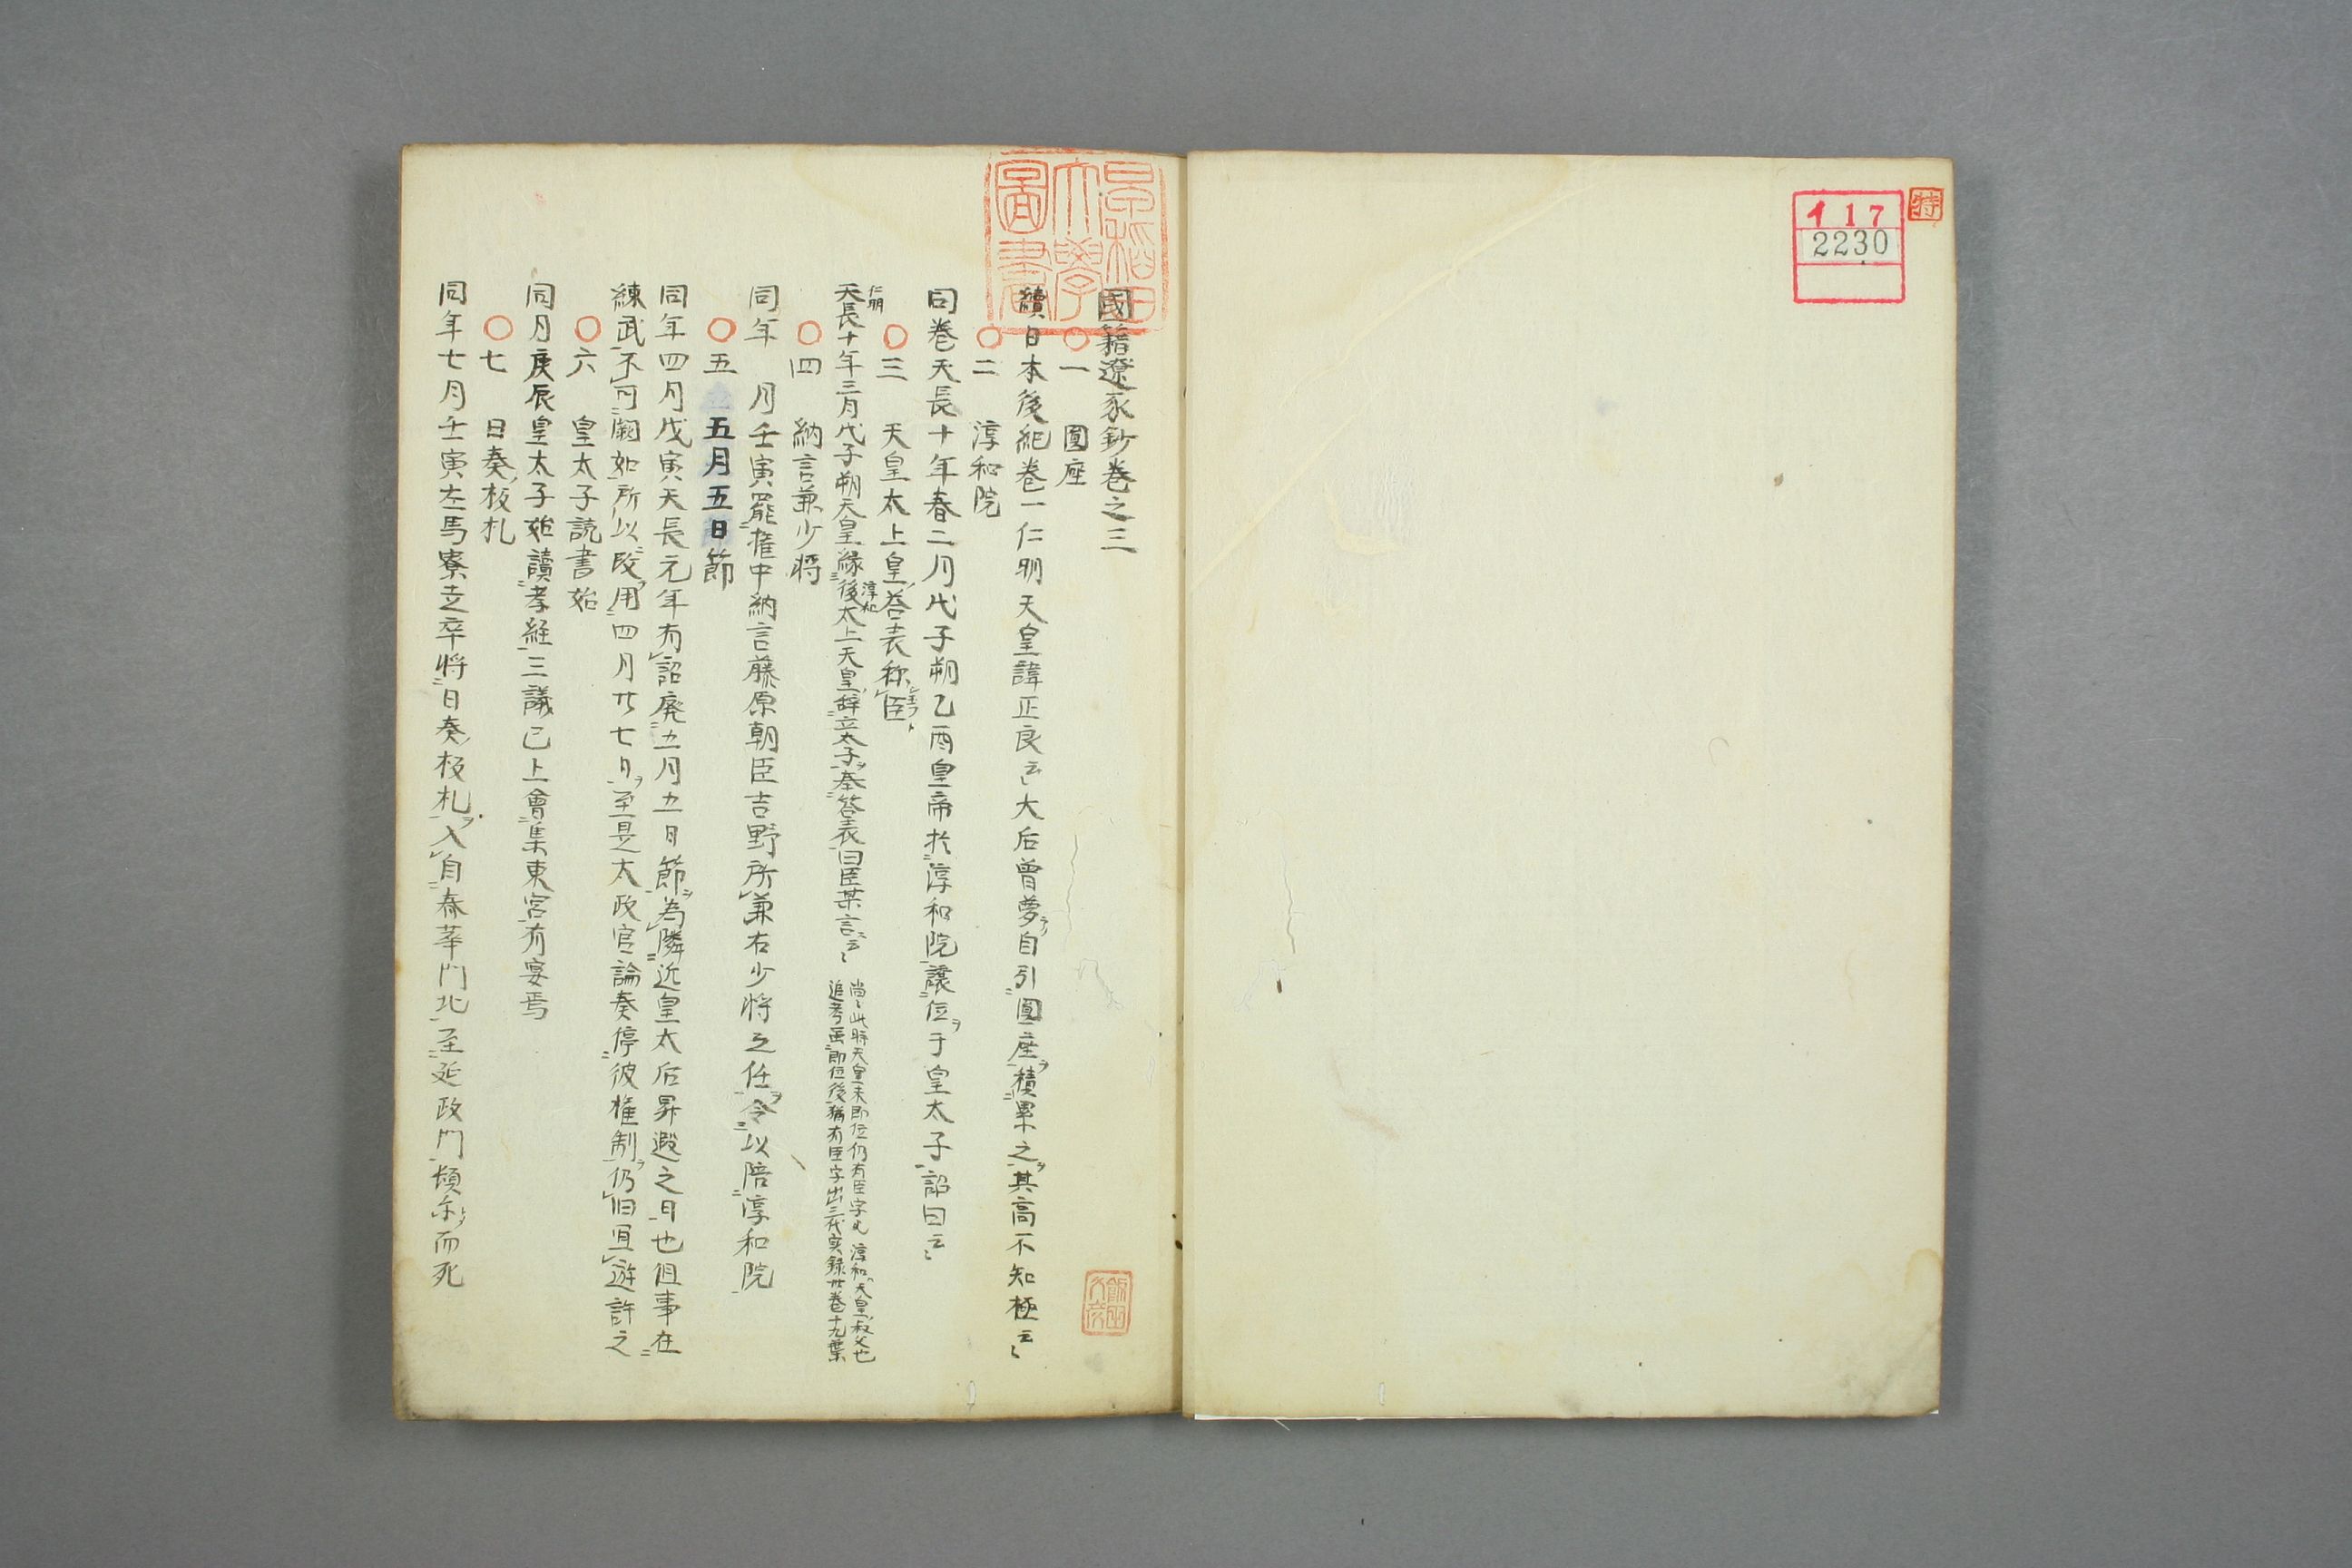 特
117
2230
早稻田大學圖書
國籍遼豕鈔巻之三
○一 圓座
續日本後紀巻一仁明天皇諱正良云〻大后曾夢自引圓座積累之其高不知極云〻
○二 淳和院
同巻天長十年春二月戊子朔乙酉皇帝於淳和院譲位于皇太子詔曰云〻
○三 天皇太上皇答表称臣
仁明
天長十年三月戊子朔天皇縁後太上天皇辞立太子奉答表曰臣某言云〻
淳和
尚〻此時天皇未即位仍有臣字 淳和天皇叔父也
追考 即位後猶有臣字出三代実録廿巻十九葉
○四 納言兼少將
同年 月壬寅罷権中納言藤原朝臣吉野所兼右少将之任令以陪淳和院
○五 五月五日節
同年四月戊寅天長元年有詔廃五月五日節為隣近皇太后昇遐之日也但事在
練武不可闕如所以改用四月廿七日至是太政官論奏停彼権制仍旧宜 許之
○六 皇太子読書始
同月庚辰皇太子始讀孝経三議已上會集東宮有宴焉
○七 日奏板札
同年七月壬寅左馬寮立卒将日奏板札入自春華門北至延政門頓 而死
飯田